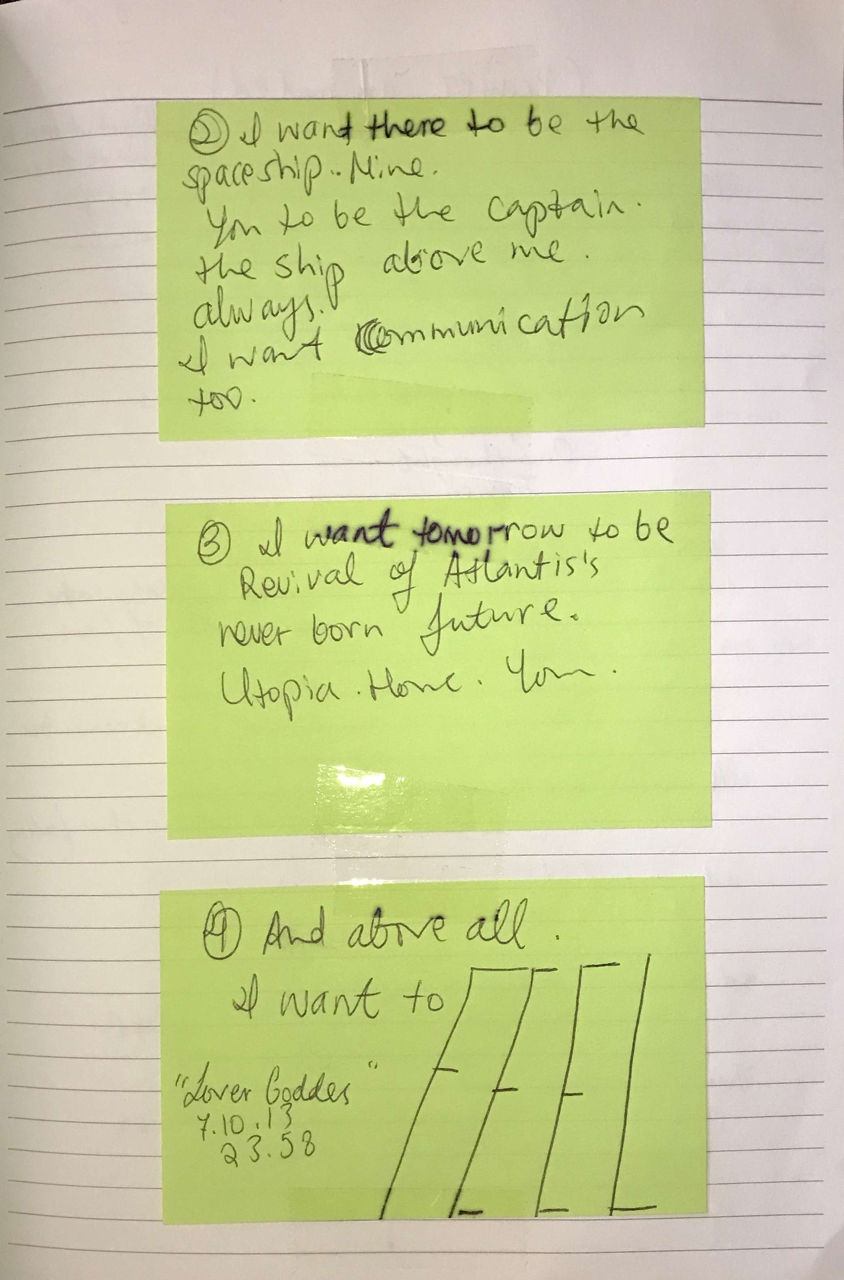 ② I want there to be the
spaceship.. Mine.
You to be the captain.
the ship above me.
always.
I want Communication
too.
③ I want tomorrow to be
Revival of Atlantis's
never born future.
Utopia. Home. You.
④ And above all.
I want to FEEL
"Lover Goddes"
7.10.13
23.58